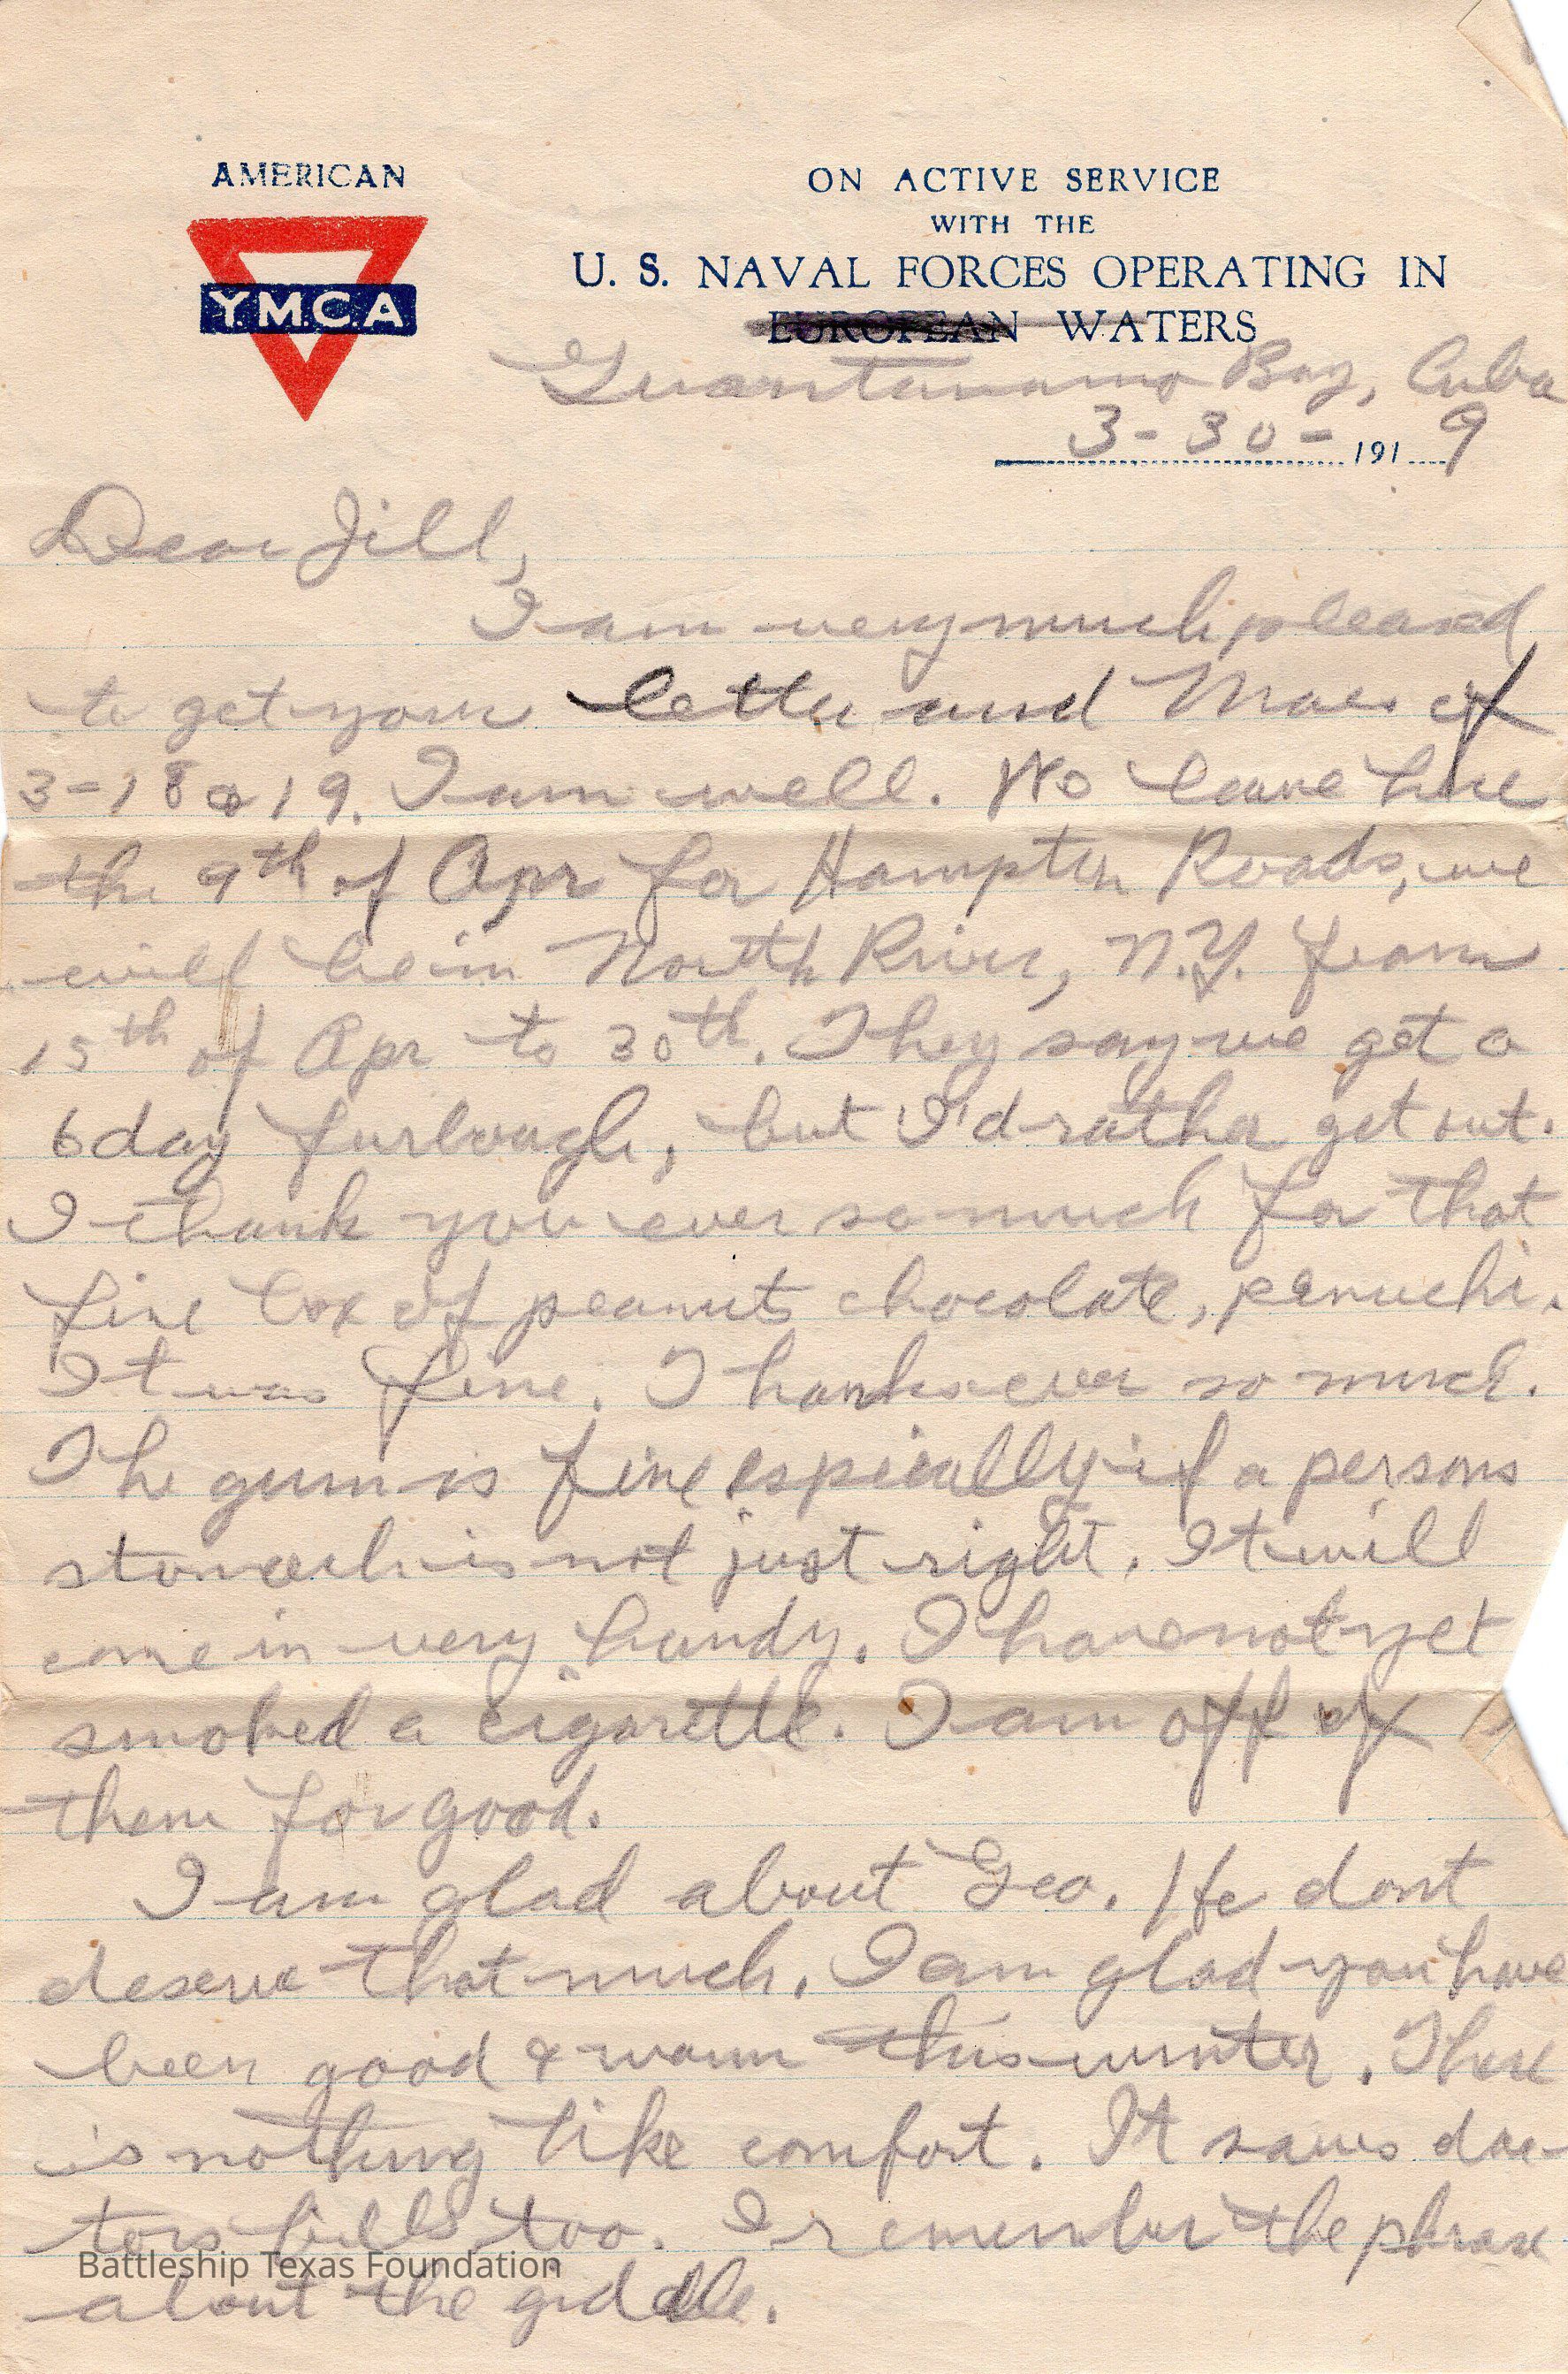 AMERICAN
Y.M.C.A
ON ACTIVE SERVICE
WITH THE
U. S. NAVAL FORCES OPERATING IN
EUROPEAN WATERS
Guantanamo Bay, Cuba
3-30- 1919
Dear Jill,
I am very much pleased
to get your letter and Maes of
3-18 & 19. I am well. We leave here
the 9th of Apr for Hampton Roads, we
will be in North River, N.Y. from
15th of Apr to 30th. They say we get a
6 day furlough, but I'd rather get out.
I thank you ever so much for that
fine box of peanuts chocolate, penuchi.
It was fine. Thanks ever so much.
The gum is fine espicially if a persons
stomach is not just right. It will
come in very handy. I have not yet
smoked a cigarette. I am off of
them for good.
I am glad about Geo. He dont
deserve that much. I am glad you have
been good & warm this winter. There
is nothing like comfort. It saves doc-
tors bills too. I remember the phrase
about the
Battleship Texas Foundation